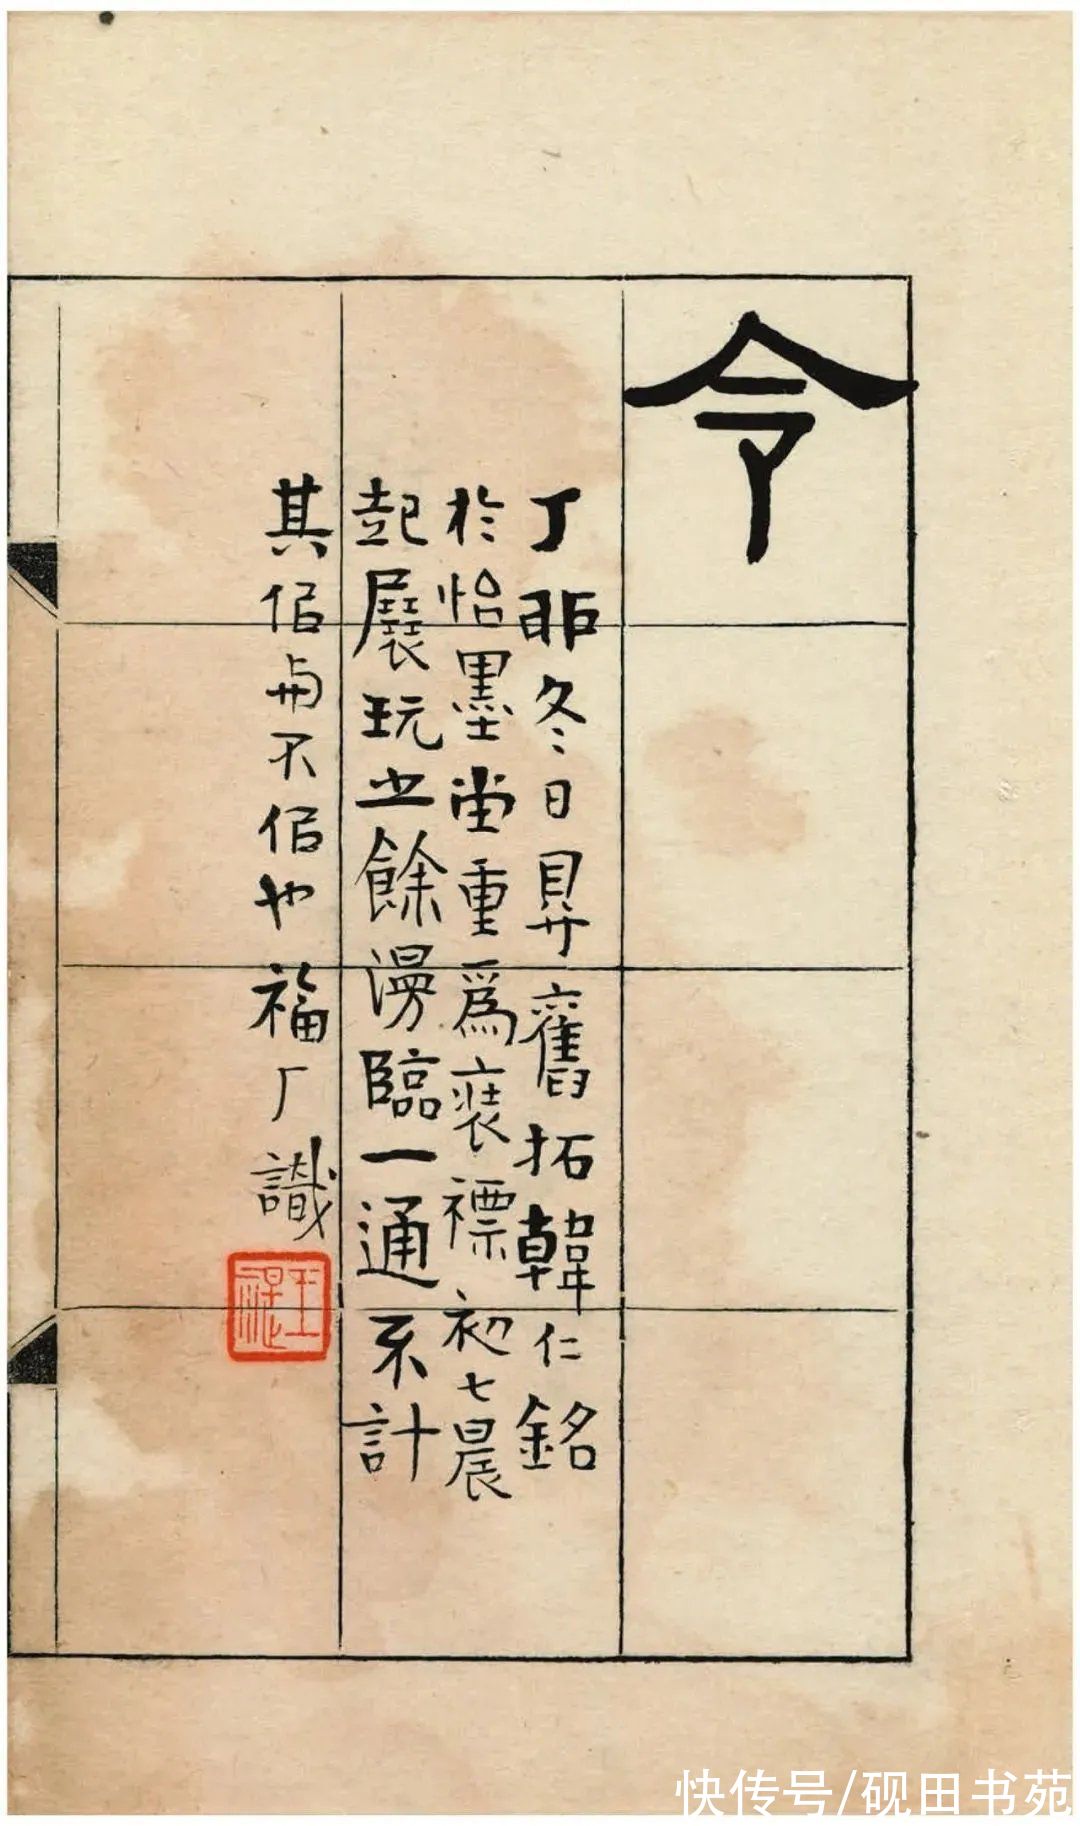 令
丁丣冬日㝵舊拓韓仁銘
於怡墨堂重爲裝褾初七晨
起展玩之餘漫臨一通不計
其佀與不佀也福厂識
王禔
快传号/砚田书苑